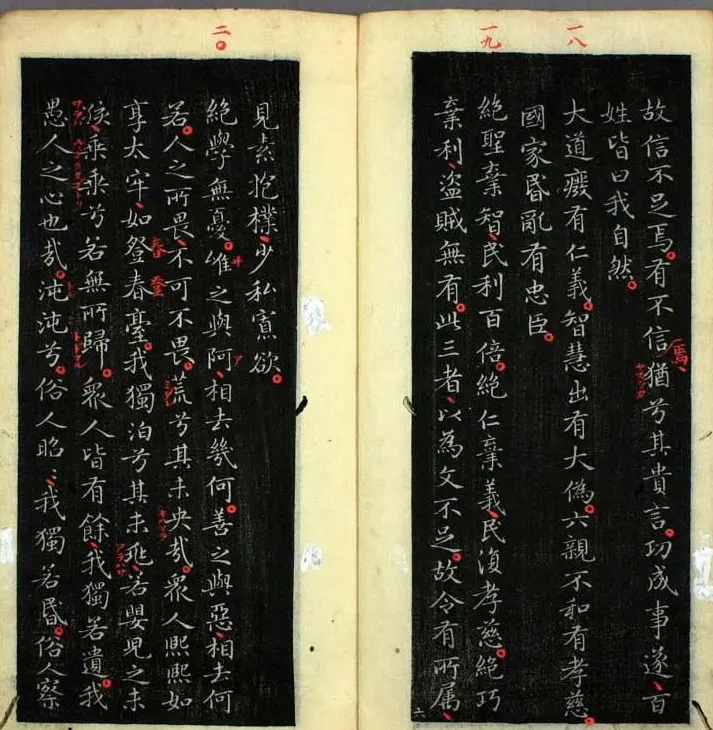 一八
一九
故信不足焉。有不信猶兮其貴言。功成事遂、百
焉、
姓皆曰我自然。
大道癈有仁義。智慧出有大偽。六親不和有孝慈。
國家昏亂有忠臣。
絕聖棄智、民利百倍。絕仁棄義、民復孝慈。絕巧
棄利、盜賊無有。此三者、以為文不足。故令有所属、
六
二〇
見素抱樸、少私寡欲。
絕學無憂。唯之與阿、相去幾何。善之與惡、相去何
若。人之所畏、不可不畏。荒兮其未央哉。衆人熙熙如
享太牢、如登春臺。我獨泊兮其未兆、若嬰兒之未
春登
孩、乗乗兮若無所歸。衆人皆有餘、我獨若遺。我
愚人之心也哉。沌沌兮。俗人昭〻、我獨若昏。俗人察